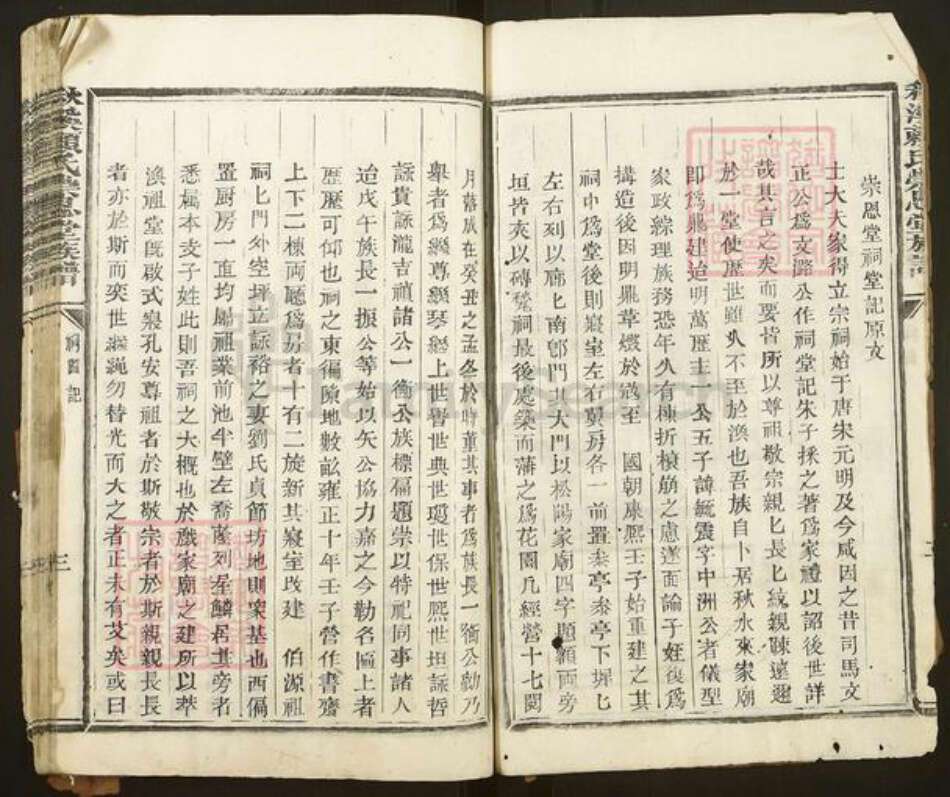 崇恩堂祠堂記原文
士大夫家得立宗祠始于唐宋元明及今咸因之昔司馬文
正公為文潞公作祠堂記朱子採之著為家禮以詔後世詳
哉其言之矣而要皆所以尊祖敬宗親匕長長匕紋親踈遠邇
於一堂使歷世雖久不至於渙也吾族自卜居秋水來家廟
即為鼎建迨明萬歷主一公五子諱毓震字中洲公者儀型
家政綜理族務恐年久有棟折榱崩之慮遂面諭子姪復為
構造後因明鼎革燬於寇至 國朝康熙壬子始重建之其
祠中為堂後則寢室左右翼房各一前置泰亭泰亭下墀匕
左右列以廊匕南郎門其大門以松陽家廟四字題額兩旁
垣皆夾以磚甃祠最後處築而藩之為花園凡經營十七閱
月落成在癸丑之孟冬於時董其事者為族長一衡公勷乃
舉者為繼尊繼琴繼上世譽世典世瓊世保世熙世垣詠哲
詠貴詠瀧吉禎諸公一衡公族標匾題崇以特祀同事諸人
迨戊午族長一振公等始以矢公協力嘉之今勒名匾上者
歷歷可仰也祠之東偏隙地數畝雍正十年壬子營作書齋
上下二棟兩廳為房者十有二旋新其寢室改建 伯源祖
祠匕門外空坪立詠裕之妻劉氏貞節坊地則衆基也西偏
置厨房一直均屬祖業前池半壁左喬隆列星麟居其旁者
悉屬本支子姓此則吾祠之大概也於戲家廟之建所以萃
渙祖堂既啟式寢孔安尊祖者於斯敬宗者於斯親親長長
者亦於斯而奕世繼繩勿替光而大之者正未有艾矣或曰
秋溪賴氏崇恩堂族譜
祠堂記
三